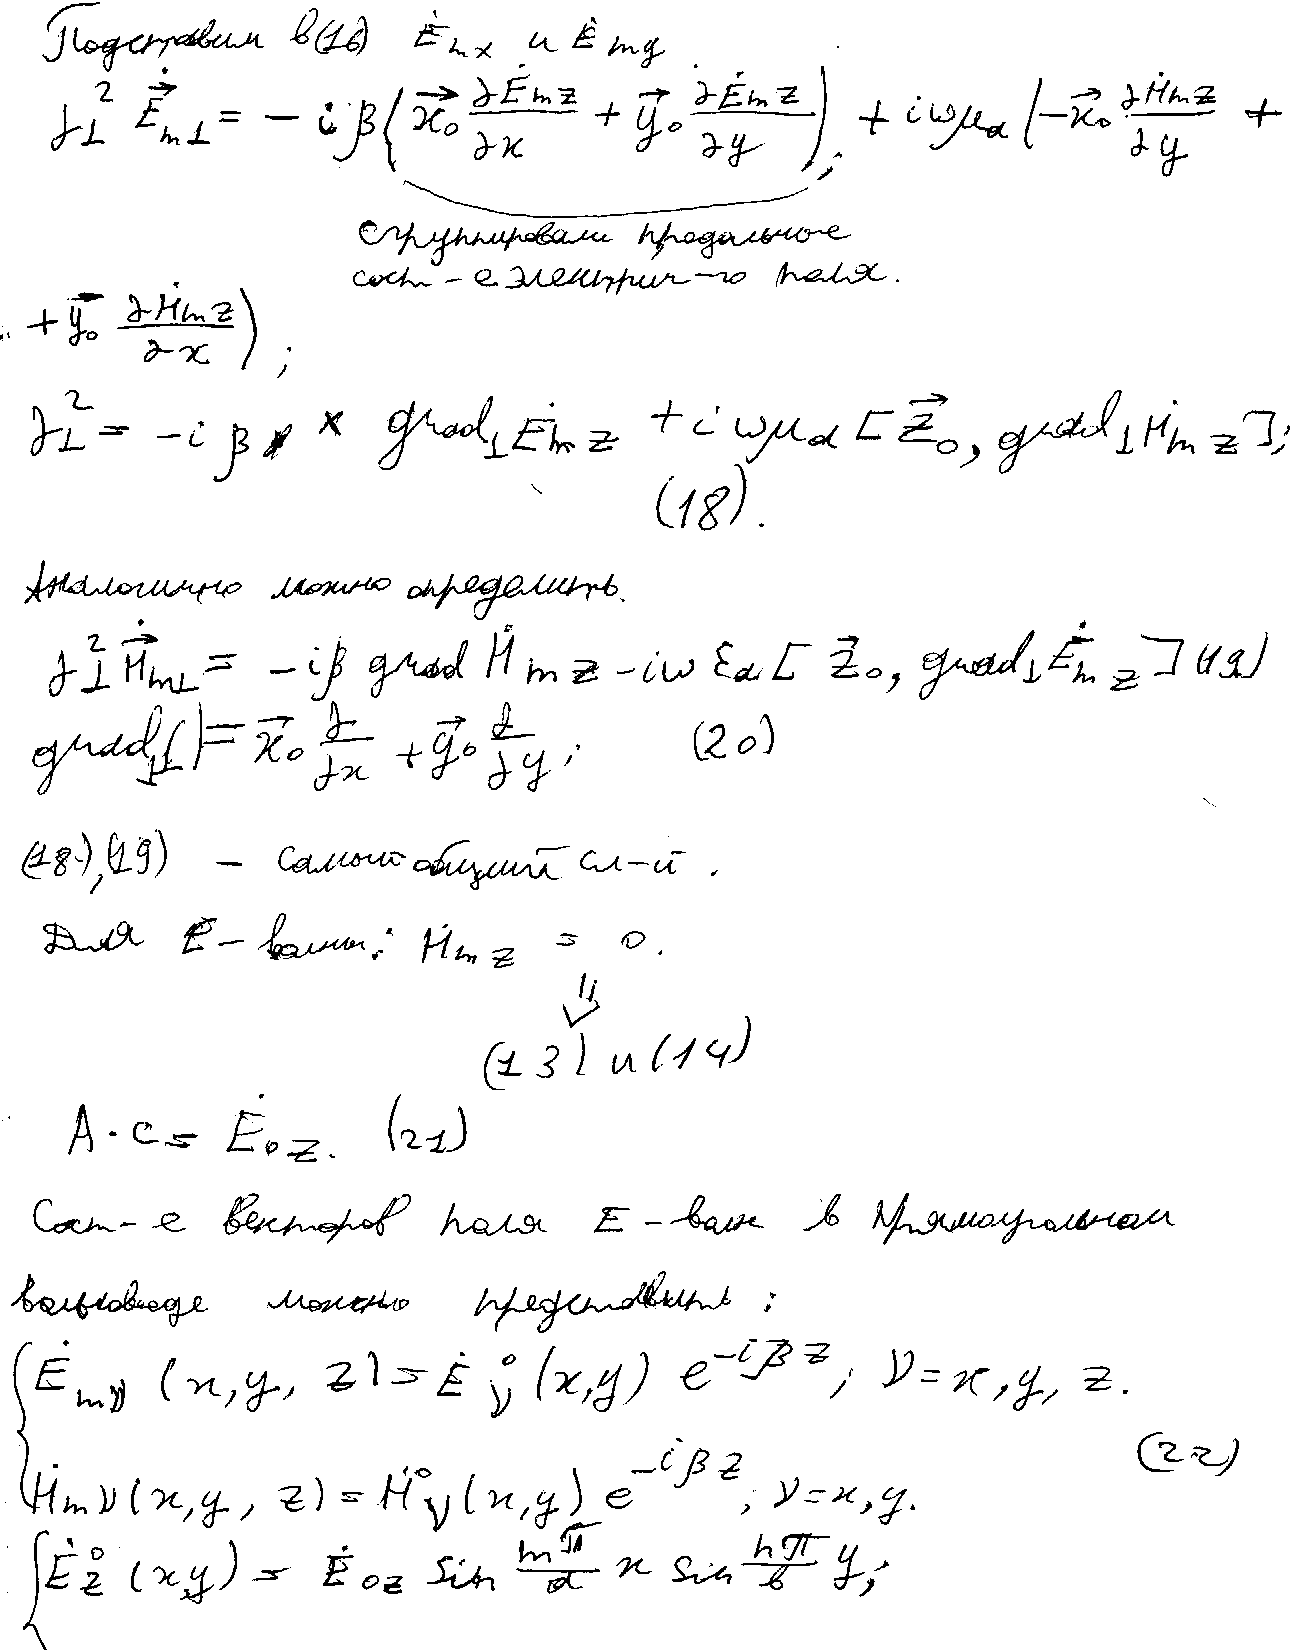 Подставим в (16) Ėmx и Ėmy
γ⊥² Ė⃗m⊥ = - iβ( x⃗₀ ∂Ėmz/∂x + y⃗₀ ∂Ėmz/∂y ); + iωμa ( -x⃗₀ ∂Ḣmz/∂y +
сгруппировали продольное
сост-е электрич-го поля.
+ y⃗₀ ∂Ḣmz/∂x );
γ⊥² = -iβ × grad⊥ Ėmz + iωμa [ z⃗₀, grad⊥ Ḣmz ];
(18).
Аналогично можно определить.
γ⊥² Ḣ⃗m⊥ = -iβ grad Ḣmz - iω εa [ z⃗₀, grad⊥ Ėmz ] (19)
grad⊥( ) = x⃗₀ ∂/∂x + y⃗₀ ∂/∂y; (20)
(18), (19) - самый общий сл-й.
Для E - волны: Ḣmz = 0.
⇓
(13) и (14)
A·C = Ė₀z. (21)
Сост-е векторов поля E - волн в прямоугольном
волноводе можно представить:
{ Ėmν (x, y, z) = Ė°ν (x,y) e^-iβz; ν = x, y, z.
(22)
Ḣmν (x, y, z) = Ḣ°ν (x,y) e^-iβz; ν = x, y.
{ Ė°z (x,y) = Ė₀z sin mπ/a x sin nπ/b y;